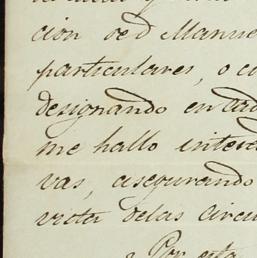 cion de d Manue
particulares, o co
designando en ad
me hallo intere
vas, asegurando
vista delas circu
Por esta